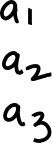 a₁
a₂
a₃